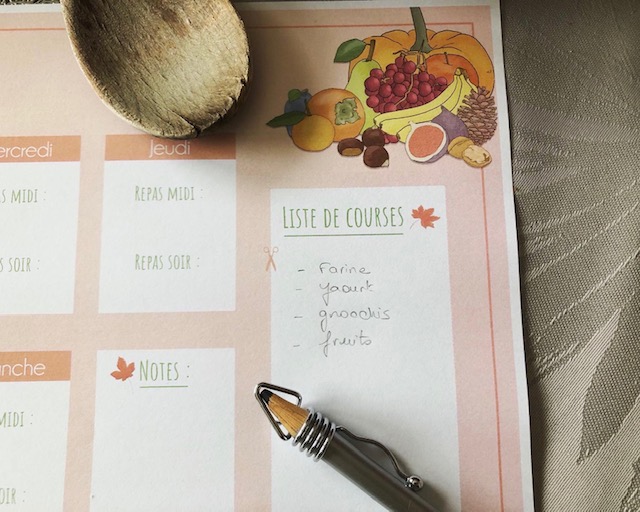 ercredi
Jeudi
s midi :
Repas midi :
s soir :
Repas soir :
Liste de courses
- Farine
- yaourt
- gnocchis
- fruits
nche
Notes :
midi :
oir :